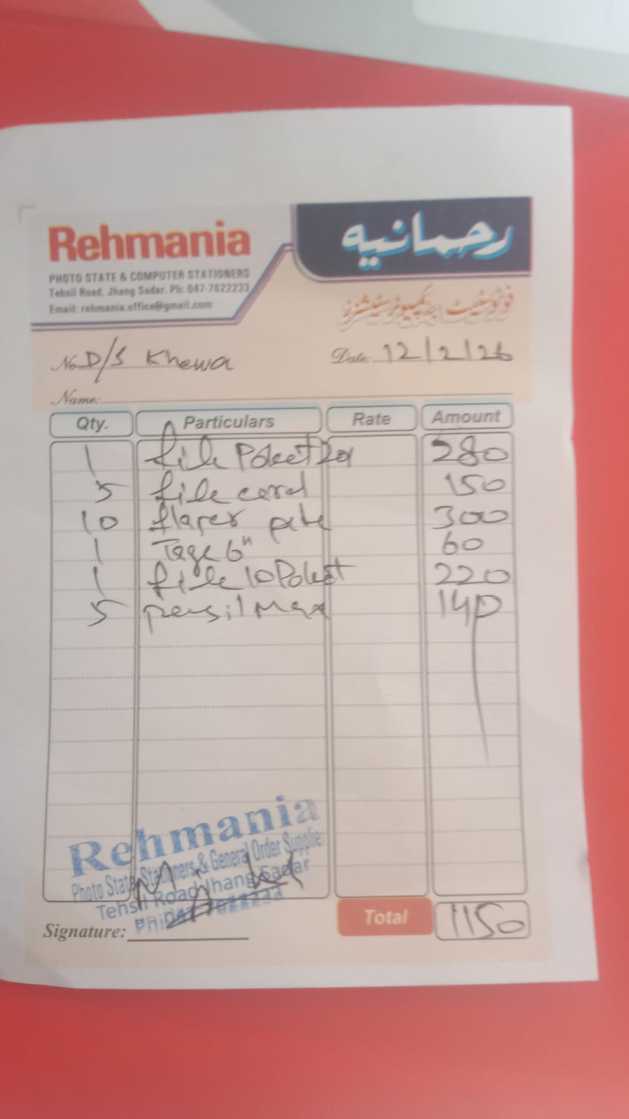 Rehmania
رحمانیہ
PHOTO STATE & COMPUTER STATIONERS
Tehsil Road, Jhang Sadar. Ph: 047-7622233
Email: rehmania.office@gmail.com
فوٹوسٹیٹ اینڈ کمپیوٹر سٹیشنرز
No. D/S Khewa Date: 12/2/26
Name:
Qty. Particulars Rate Amount
1 file Poket 20 280
5 file coral 150
10 flaper 300
1 Tage 6" 60
1 file 10 Poket 220
5 pensil Max 140
Rehmania
Photo State Stationers & General Order Supplie
Tehsil Road Jhang Sadar
Ph:
Signature:
Total 1150